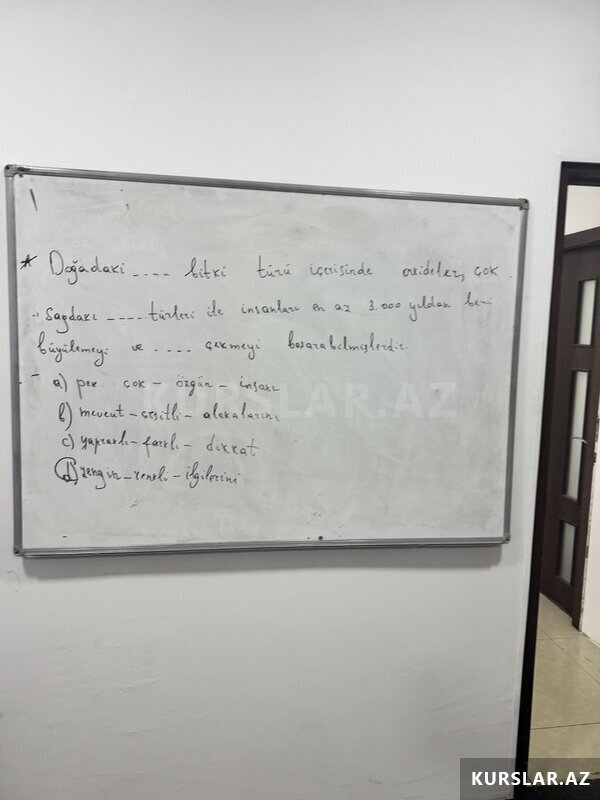 * Doğadaki .... bitki türü içerisinde orkideler, çok
sayıdakı .... türleri ile insanları en az 3.000 yıldan beri
büyülemeyi ve .... çekmeyi başarabilmişlerdir
a) pek çok - özgün - insanı
b) mevcut - çeşitli - alakalarını
c) yapraklı - farklı - dikkat
d) zengin - renkli - ilgilerini
KURSLAR.AZ
KURSLAR.AZ